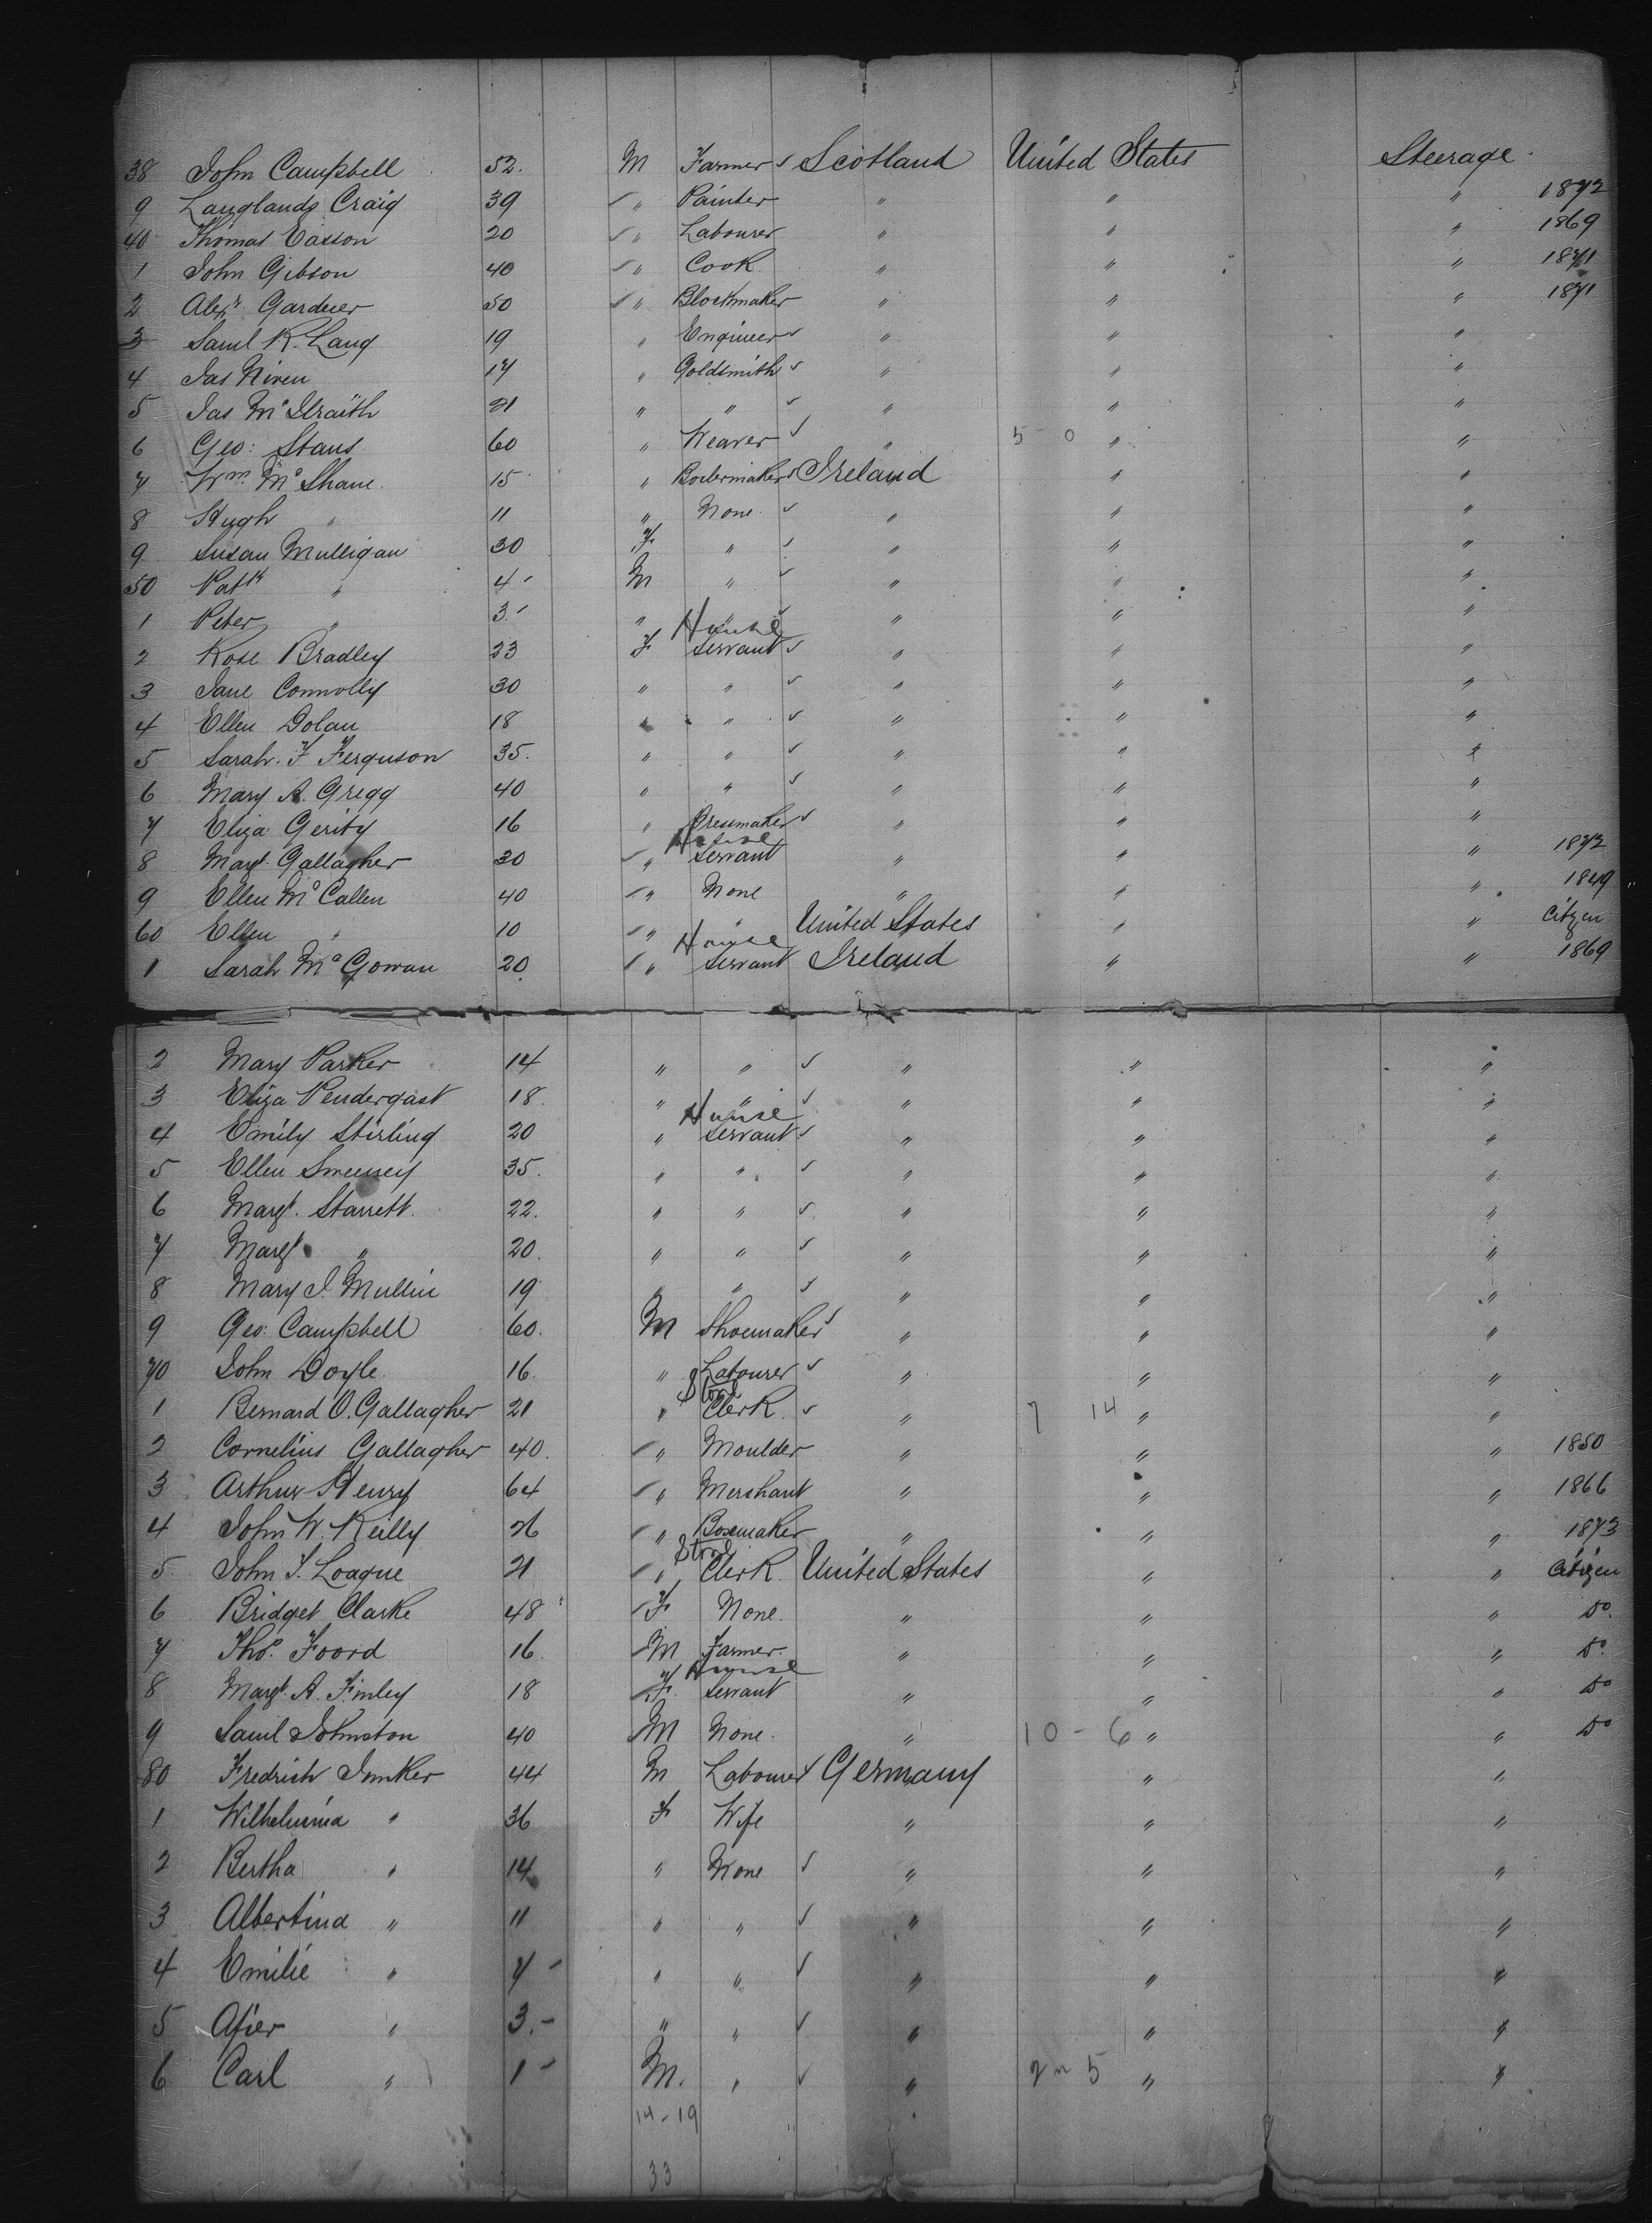 38 John Campbell 52. M Farmer ✓ Scotland United States Steerage
9 Langlands Craig 39 ✓ " Painter " " " 1872
40 Thomas Easson 20 ✓ " Labourer " " " 1869
1 John Gibson 40 ✓ " Cook " " " 1871
2 Alexr Gardner 50 ✓ " Blockmaker " " " 1871
3 Saml R. Lang 19 " Engineer ✓ " " "
4 Jas Niven 17 " Goldsmith ✓ " " "
5 Jas McIlraith 21 " " ✓ " " "
6 Geo: Staus 60 " Weaver ✓ " 5 - 0 " "
7 Wm McShane 15 " Boilermaker ✓ Ireland " "
8 Hugh " 11 " None ✓ " " "
9 Susan Mulligan 30 F " ✓ " " "
50 Patk " 4 - M " ✓ " " "
1 Peter " 3 - " " ✓ " " "
2 Rose Bradley 23 F House Servant ✓ " " "
3 Jane Connolly 30 " " ✓ " " "
4 Ellen Dolan 18 " " ✓ " " "
5 Sarah F Ferguson 35. " " ✓ " " "
6 Mary A. Gregg 40 " " ✓ " " "
7 Eliza Gerity 16 " Dressmaker ✓ " " "
8 Margt Gallagher 30 ✓ " House Servant " " " 1872
9 Ellen McCallen 40 ✓ " None " " " 1849
60 Ellen " 10 ✓ " " United States " " Citizen
1 Sarah McGowan 20. ✓ " House Servant Ireland " " 1869
2 Mary Parker 14 " " ✓ " " "
3 Eliza Pendergast 18. " " ✓ " " "
4 Emily Stirling 20 " House Servant ✓ " " "
5 Ellen Sweeney 35. " " ✓ " " "
6 Margt. Starrett 22. " " ✓ " " "
7 Margt " 20. " " ✓ " " "
8 Mary J. Mullin 19 " " ✓ " " "
9 Geo: Campbell 60. M Shoemaker ✓ " " "
70 John Doyle 16. " Labourer ✓ " " "
1 Bernard O. Gallagher 21 " Store Clerk ✓ " 7 14 " "
2 Cornelius Gallagher 40. ✓ " Moulder " " " 1850
3 Arthur Henry 64 ✓ " Merchant " " " 1866
4 John W. Reilly 26 ✓ " Boxmaker " " " 1873
5 John J. Loague 21 ✓ " Store Clerk United States " " Citizen
6 Bridget Clarke 48 ✓ F None " " " Do.
7 Thos. Foord 16 ✓ M Farmer " " " Do.
8 Margt. A. Finley 18 ✓ F. House Servant " " " Do
9 Saml Johnston 40 ✓ M None. " 10 - 6 " " Do
80 Fredrich Junker 44 M Labourer ✓ Germany " "
1 Wilhelmina " 36 F Wife " " "
2 Bertha " 14 " None ✓ " " "
3 Albertina " 11 " " ✓ " " "
4 Emilie " 7 - " " ✓ " " "
5 " 3. - " " ✓ " " "
6 Carl " 1 - M. " ✓ " 5 " "
14 - 19
33